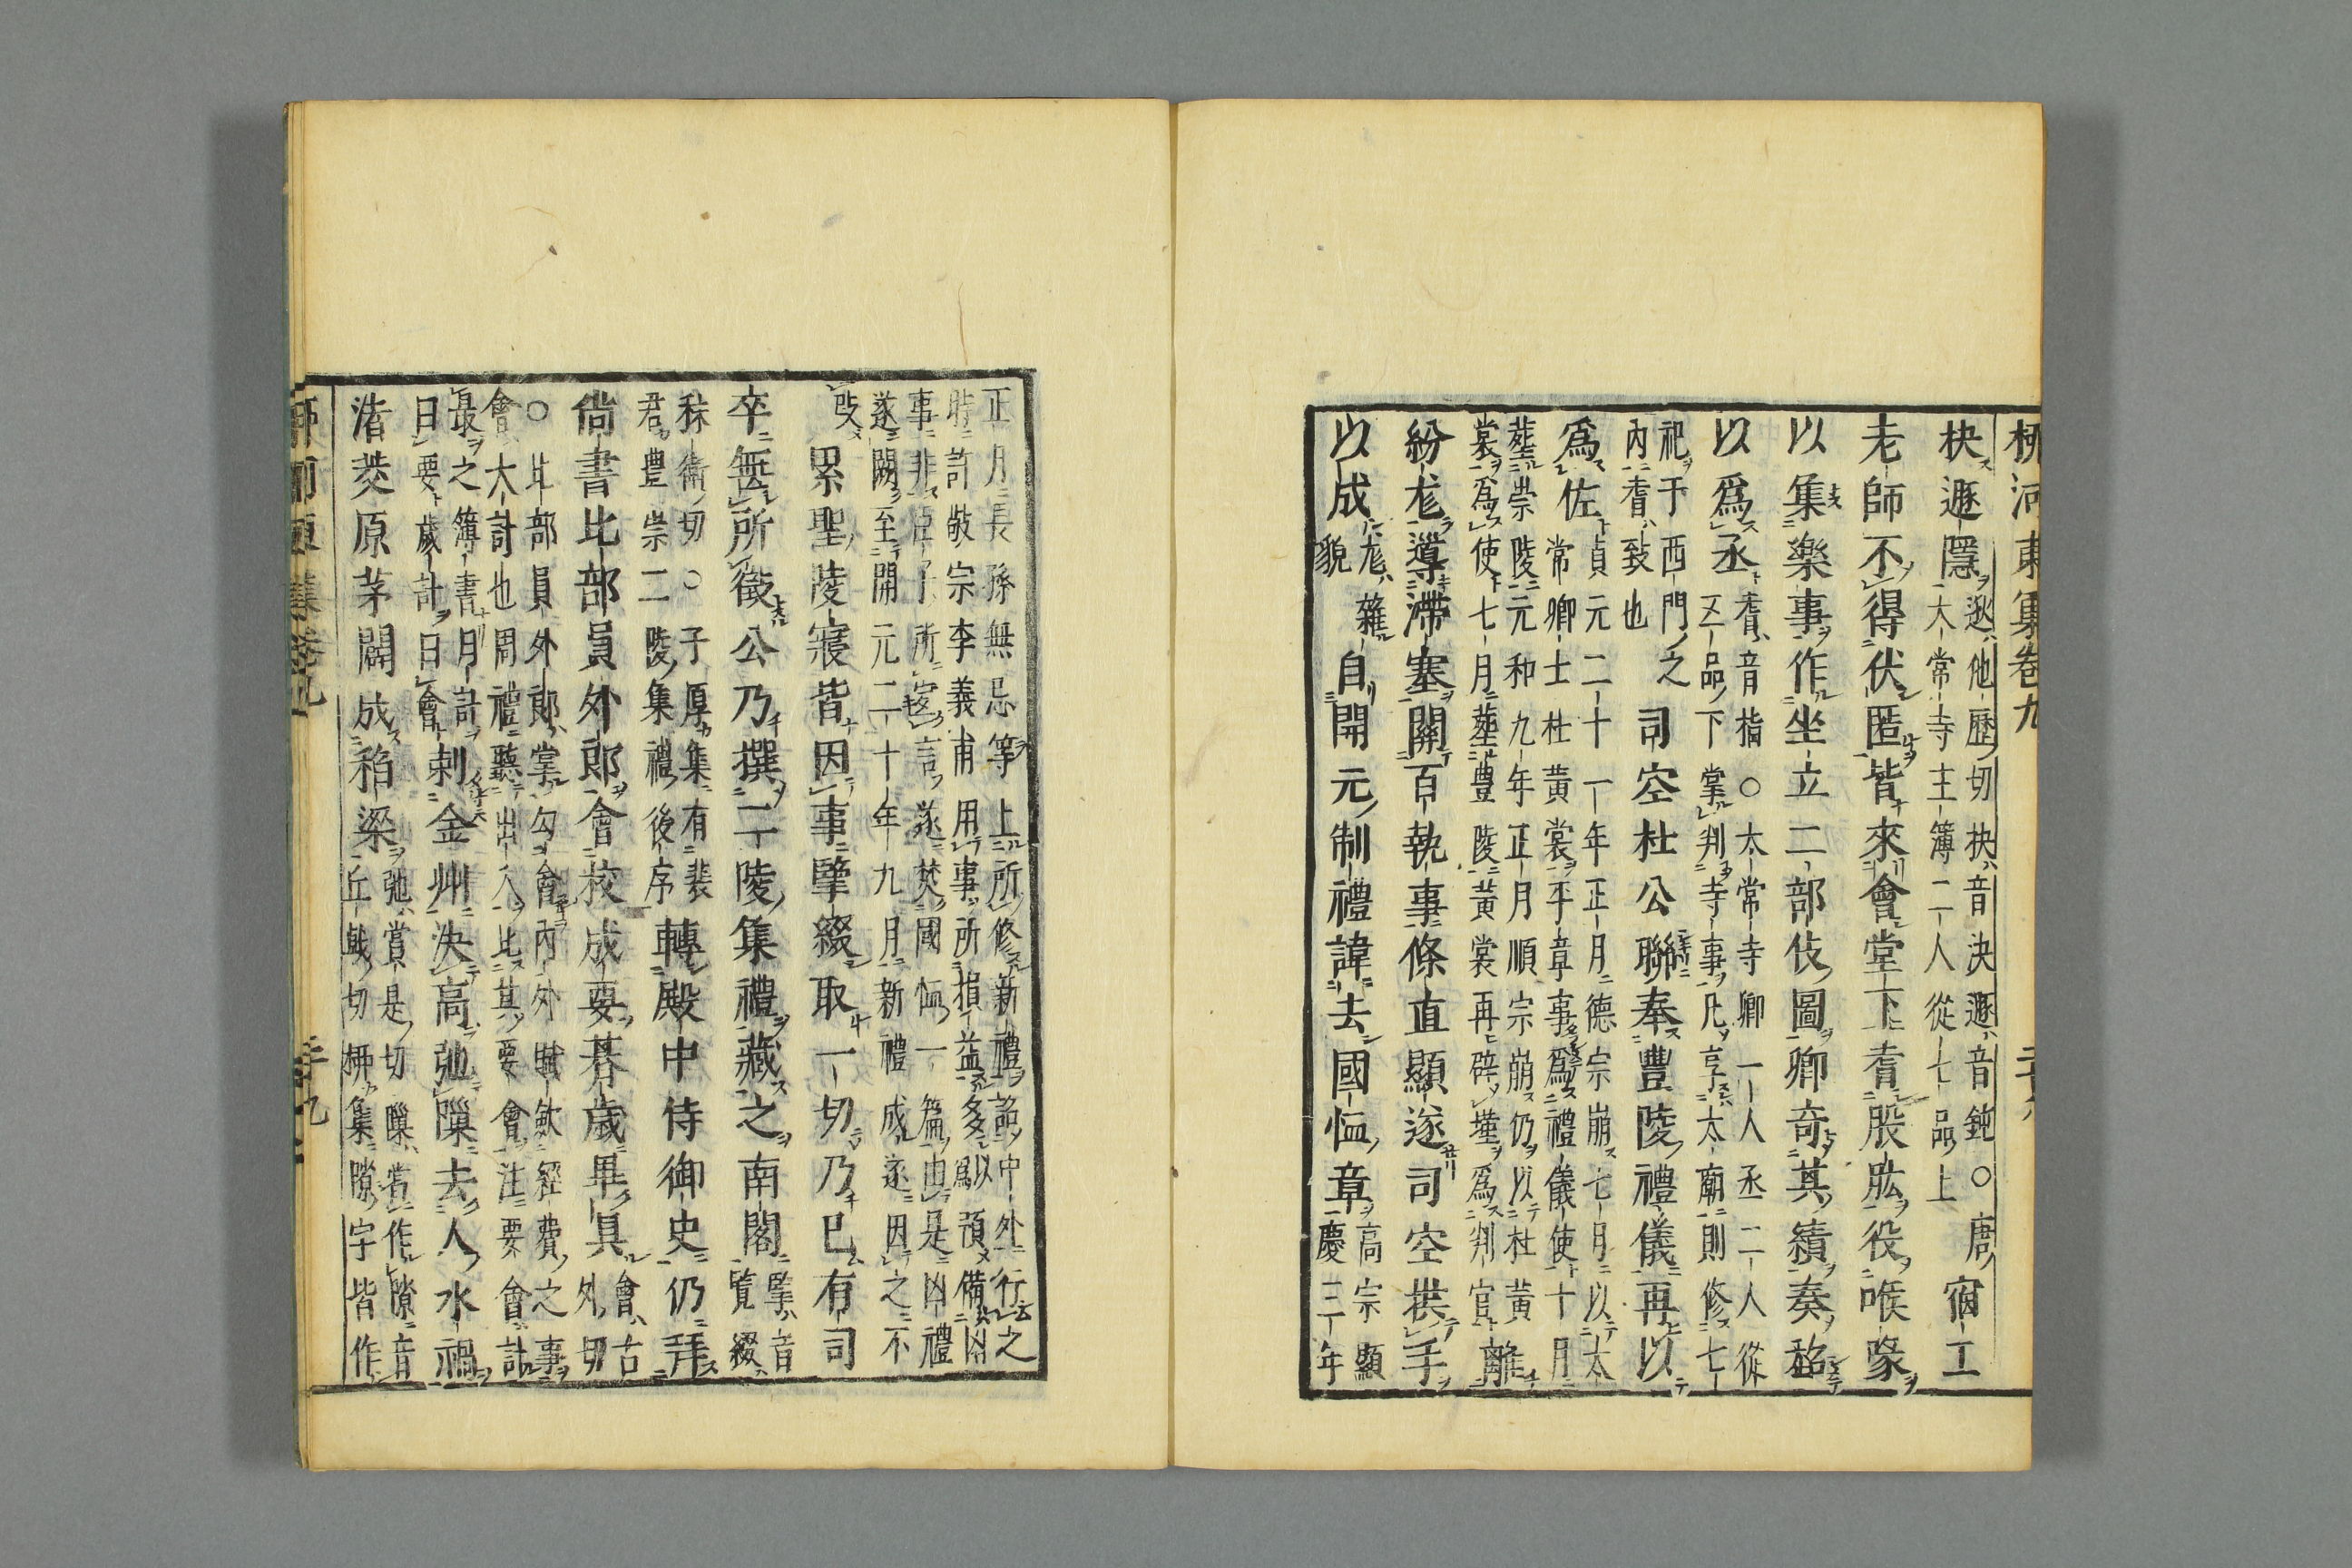 柳河東集卷九
抉遯隱
逖他歷切抉音決遯音鈍○唐
大常寺主簿二人從七品上
宿工
老師不得伏匿皆來會堂下耆股肱役喉喙
以集樂事作坐立二部伎圖卿奇其績奏超
以爲丞
耆音指○太常寺卿一人丞二人從
五品下掌判寺事凡享太廟則修七
祀于西門之
內耆致也
司空杜公聯奉豐陵禮儀再以
爲佐
貞元二十一年正月德宗崩七月以太
常卿士杜黃裳平章事爲禮儀使十月
葬崇陵元和九年正月順宗崩仍以杜黃
裳爲使七月葬豊陵黃裳再辟墐爲判官
離
紛尨導滯塞關百執事條直顯遂司空拱手
以成
尨雜
貌
自開元制禮諱去國恤章
高宗顯
慶三年
正月長孫無忌等上所修新禮詔中外行之
時許敬宗李義甫用事所損益多以爲預備凶
事非臣子所宜言遂焚國恤一篇由是凶禮
遂闕至開元二十年九月新禮成遂因之不
改
累聖陵寢皆因事肇綴取一切乃已有司
卒無所徵公乃撰二陵集禮藏之南閣
肇音
覽綴
秣衛切○子厚集有裴
君豊崇二陵集禮後序
轉殿中侍御史仍拜
尙書比部員外郎會校成要朞歲畢具
會古
外切
○比部員外郎掌勾會內外賦斂經費之事
會大計也周禮聽出入比其要會注要會計
最之簿書月計
日要歲計日會
刺金州決高弛隟去人水禍
渚茭原茅闢成稻粱
弛賞是切隟當作隙音
丘戟切柳集隙字皆作